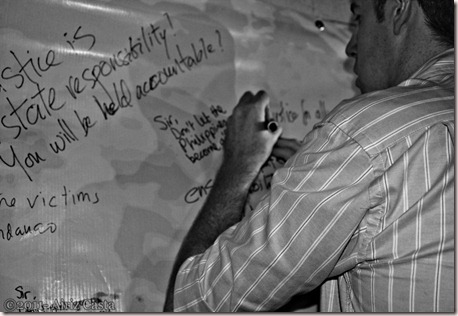 stice is
state responsibility!
You will be held accountable?
Sir,
Don't let the
Philippin
become a
justice for all
he victims
ndanao
Sir,
©2011 Aziz Casta